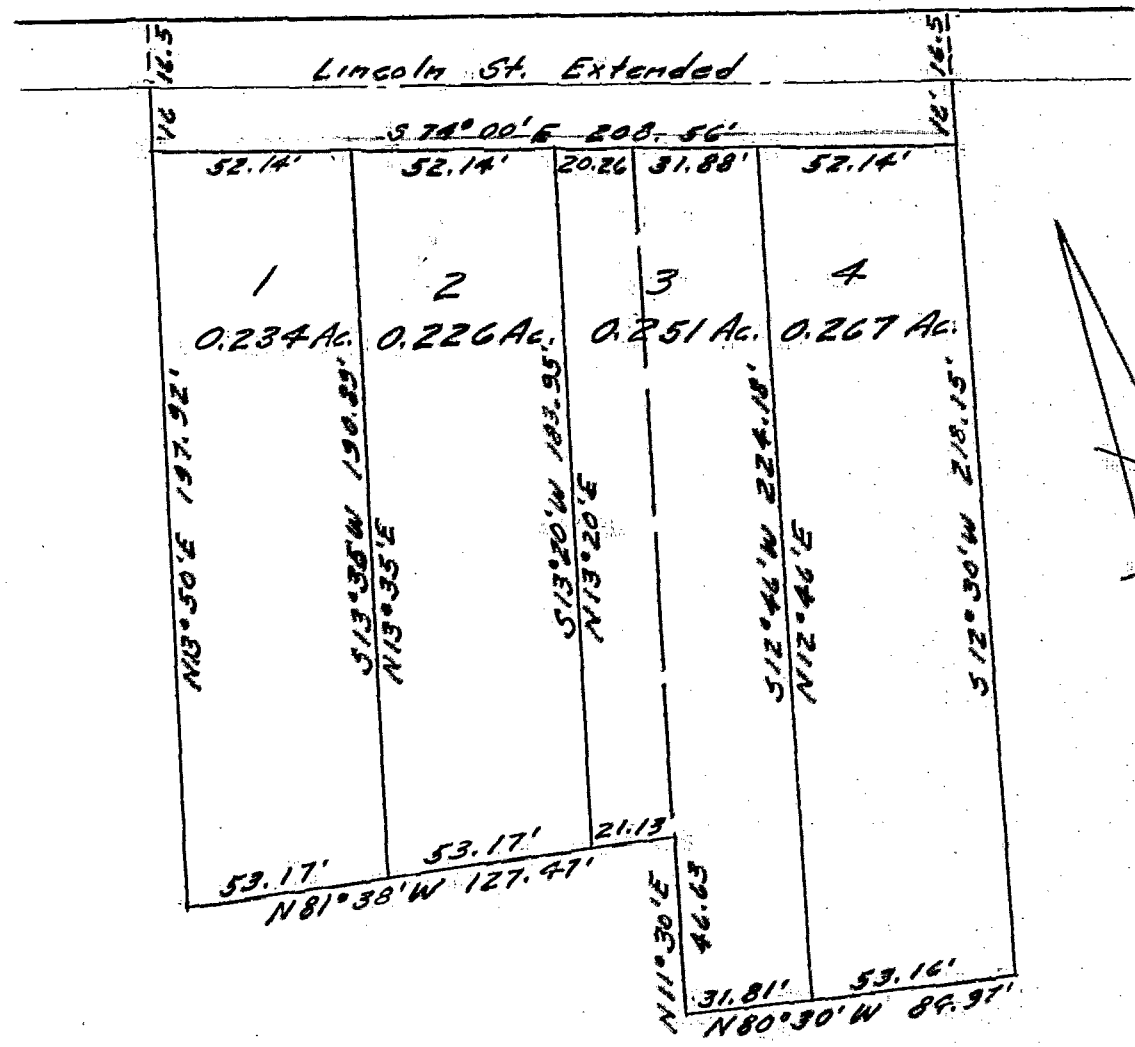 16.5
16.5
Lincoln St. Extended
16'
16'
S 74°00'E 208.56'
52.14' 52.14' 20.26 31.88' 52.14'
1 2 3 4
0.234 Ac. 0.226 Ac. 0.251 Ac. 0.267 Ac.
N13°50'E 197.92'
S13°35'W 190.89'
N13°35'E
S13°20'W 183.95'
N13°20'E
S12°46'W 224.18'
N12°46'E
S12°30'W 218.15'
53.17' 53.17' 21.13
N81°38'W 127.47'
N11°30'E 46.63
31.81' 53.16'
N80°30'W 84.97'